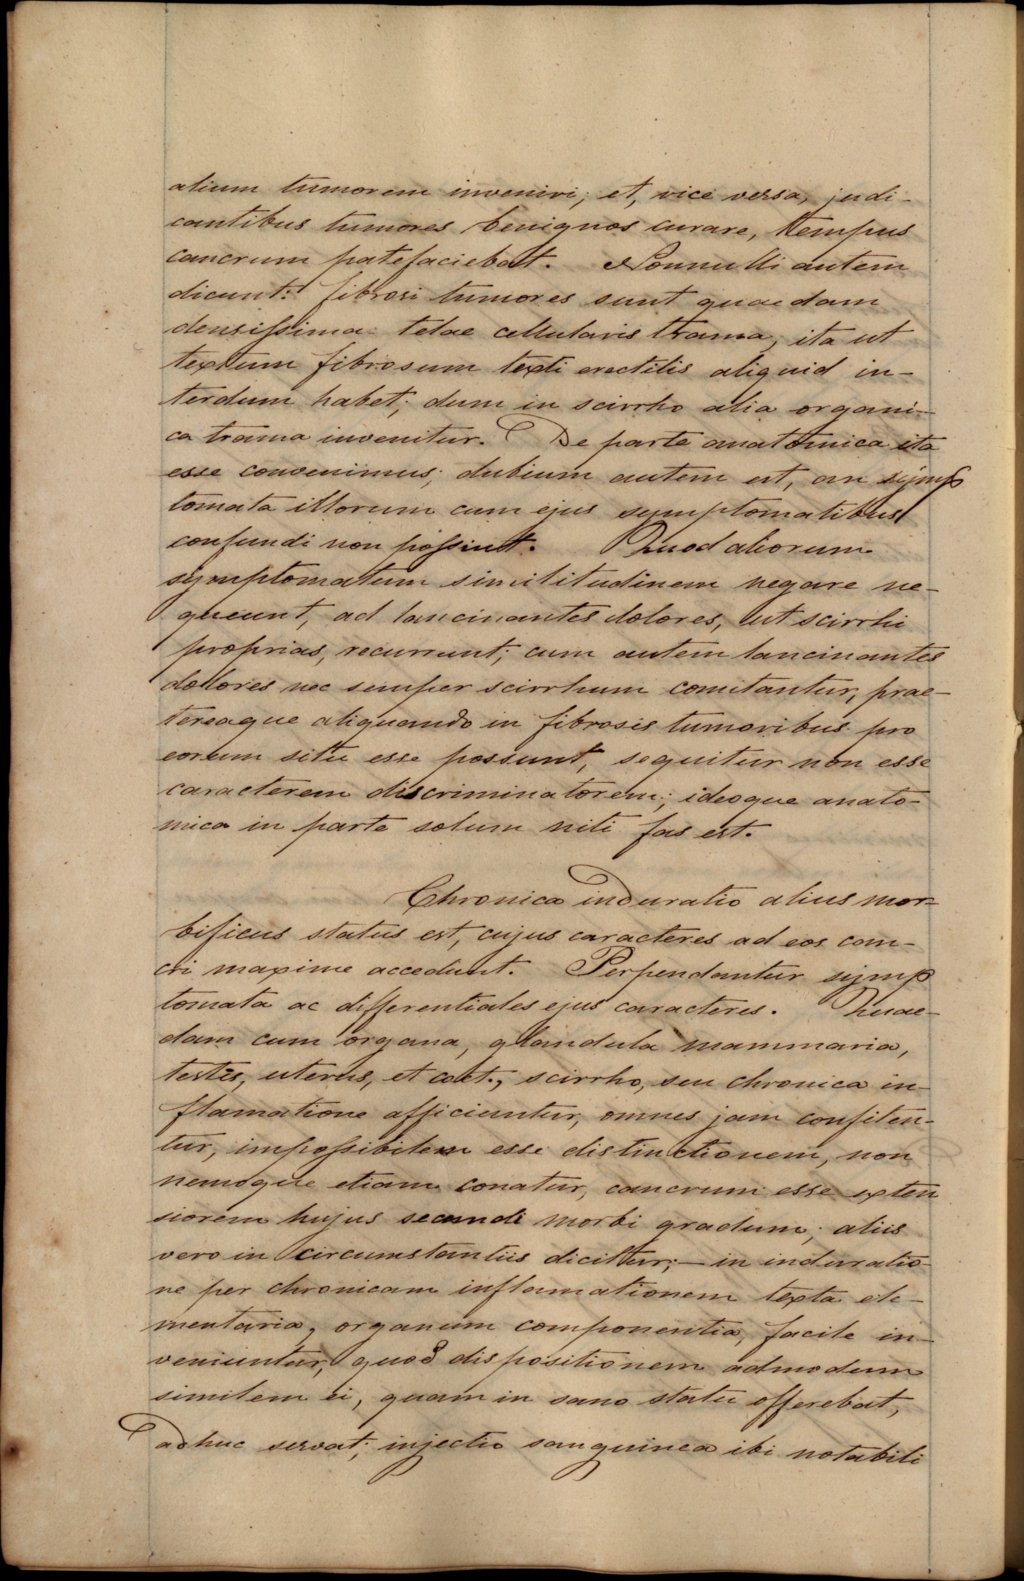 alium tumorem inveniri; et, vice versa, judi-
cantibus tumores benignos curare, tempus
cancrum patefaciebat. Nonnulli autem
dicunt: fibrosi tumores sunt quaedam
densissima telae cellularis trama, ita ut
textum fibrosum texti erectilis aliquid in-
terdum habet; dum in scirrho alia organi-
ca trama invenitur. De parte anatomica ita
esse convenimus; dubium autem est, an symp
tomata illorum cum ejus symptomatibus
confundi non possint. Quod aliorum
symptomatum similitudinem negare ne-
queunt, ad lancinantes dolores, ut scirrhi
proprias, recurrunt; cum autem lancinantes
dolores nec semper scirrhum comitantur, prae-
tereaque aliquando in fibrosis tumoribus pro
eorum situ esse possunt, sequitur non esse
caracterem discriminatorem; ideoque anato-
mica in parte solum niti fas est.
Chronica induratio alius mor-
bificus status est, cujus caracteres ad eos can-
cri maxime accedunt. Perpendantur symp
tomata ac differentiales ejus caracteres. Quae-
dam cum organa, glandula mammaria,
testis, uterus, et caet., scirrho, seu chronica in-
flamatione afficiuntur, omnes jam confiten-
tur, impossibilem esse distinctionem, non
nemoque etiam conatur, cancrum esse exten
siorem hujus secundi morbi gradum; aliis
vero in circumstantiis dicitur;— in induratio-
ne per chronicam inflamationem texta ele-
mentaria, organum componentia, facile in-
veniuntur, quod dispositionem admodum
similem ei, quam in sano statu offerebat,
adhuc servat; injectio sanguinea ibi notabili